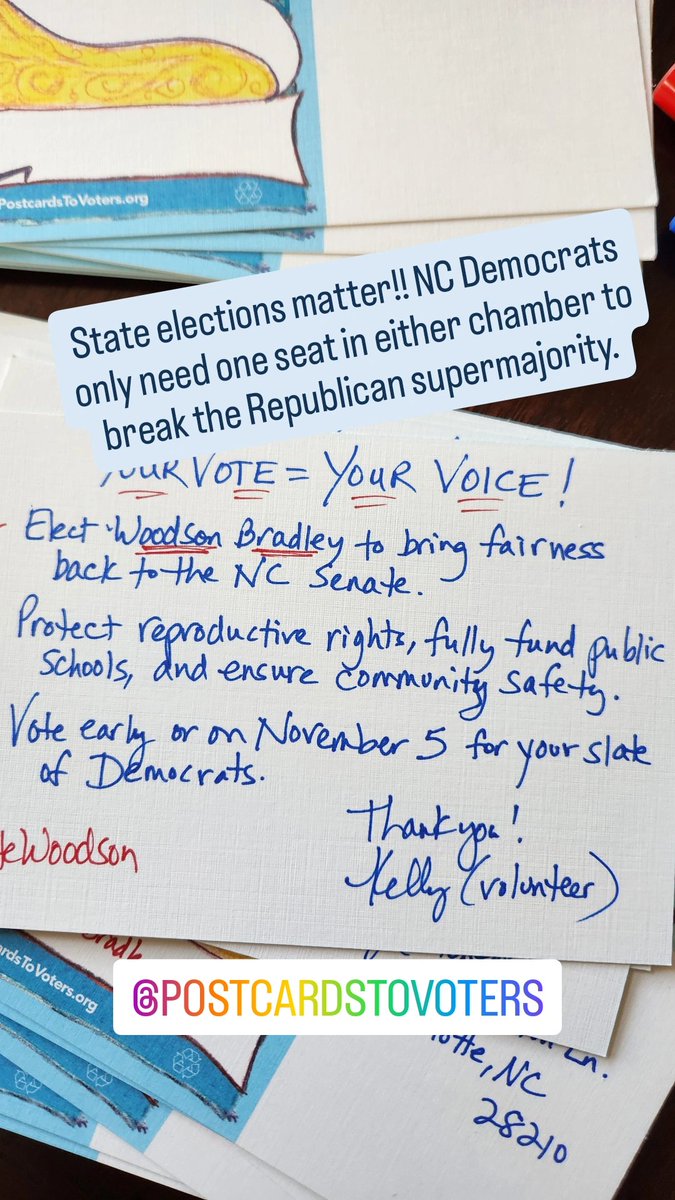 PostcardsToVoters.org
State elections matter!! NC Democrats
only need one seat in either chamber to
break the Republican supermajority.
YOUR VOTE = YOUR VOICE!
Elect Woodson Bradley to bring fairness
back to the NC Senate.
Protect reproductive rights, fully fund public
schools, and ensure community safety.
Vote early or on November 5 for your slate
of Democrats.
Thank you!
Kelly (volunteer)
teWoodson
cardsToVoters.org
@POSTCARDSTOVOTERS
Ln.
lotte, NC
28210